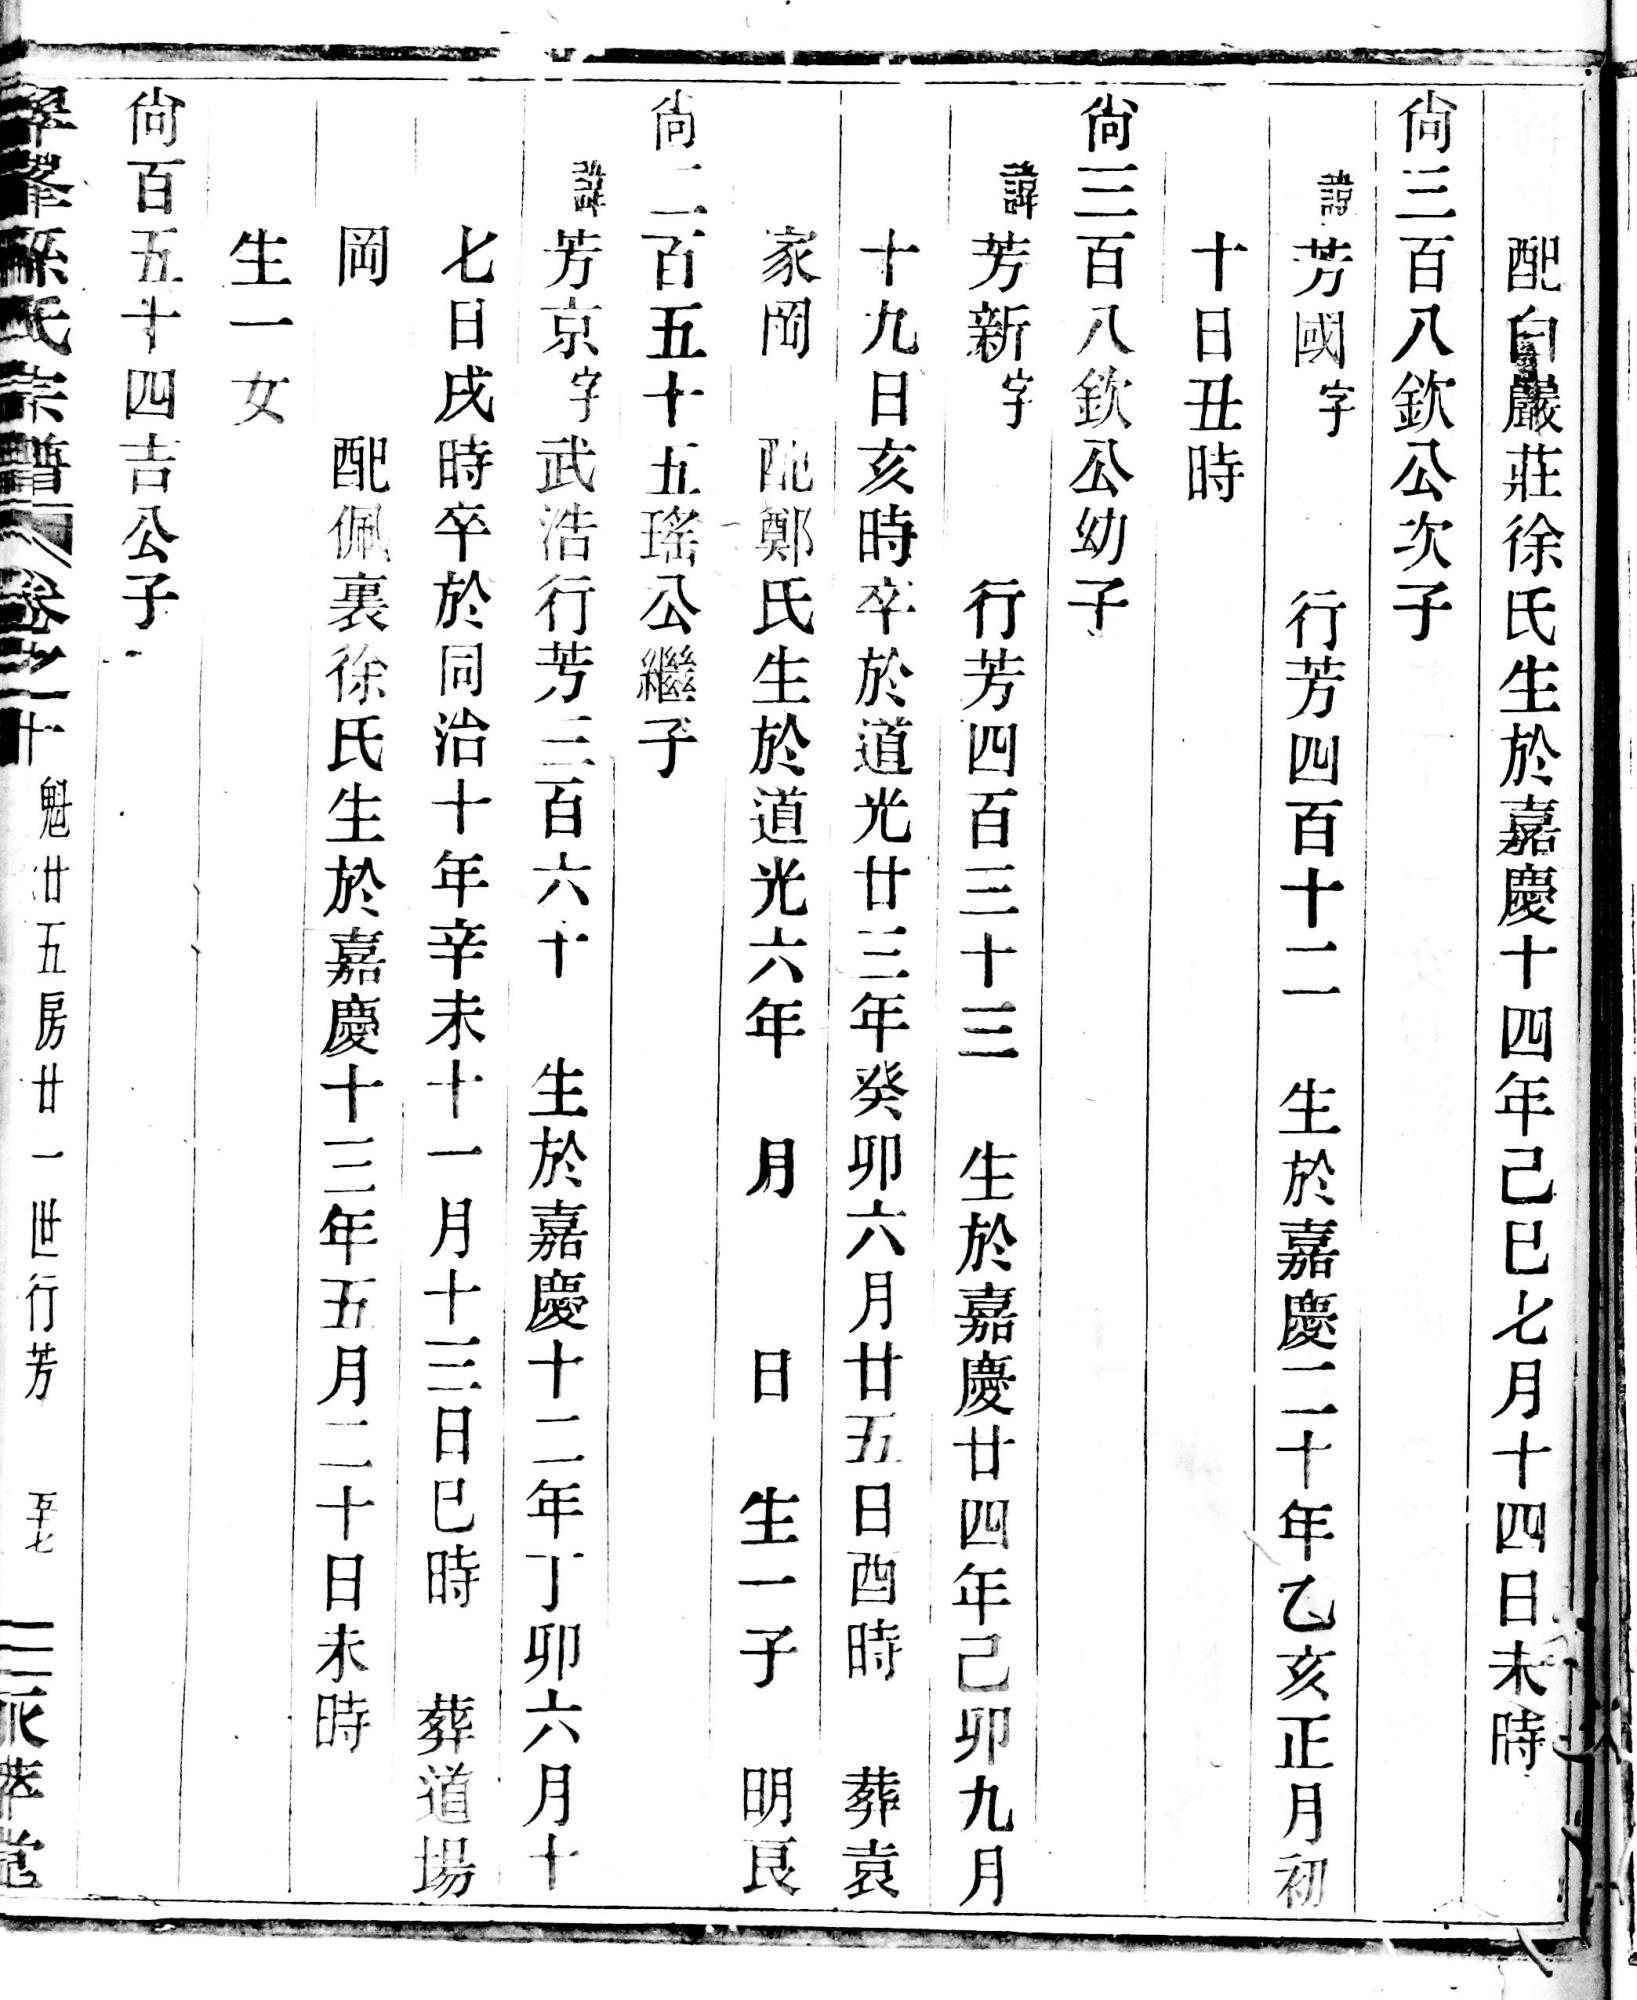 配白嚴莊徐氏生於嘉慶十四年己巳七月十四日未時
尙三百八欽公次子
諱芳國字　行芳四百十二　生於嘉慶二十年乙亥正月初
十日丑時
尙三百八欽公幼子
諱芳新字　行芳四百三十三　生於嘉慶廿四年己卯九月
十九日亥時卒於道光廿三年癸卯六月廿五日酉時　葬袁
家岡　配鄭氏生於道光六年　月　日　生一子　明良
尙二百五十五瑤公繼子
諱芳京字武浩行芳三百六十　生於嘉慶十二年丁卯六月十
七日戌時卒於同治十年辛未十一月十三日巳時　葬道場
岡　配佩裏徐氏生於嘉慶十三年五月二十日未時
生一女
尙百五十四吉公子
孫氏宗譜　卷之二十　魁廿五房廿一世行芳　五十七